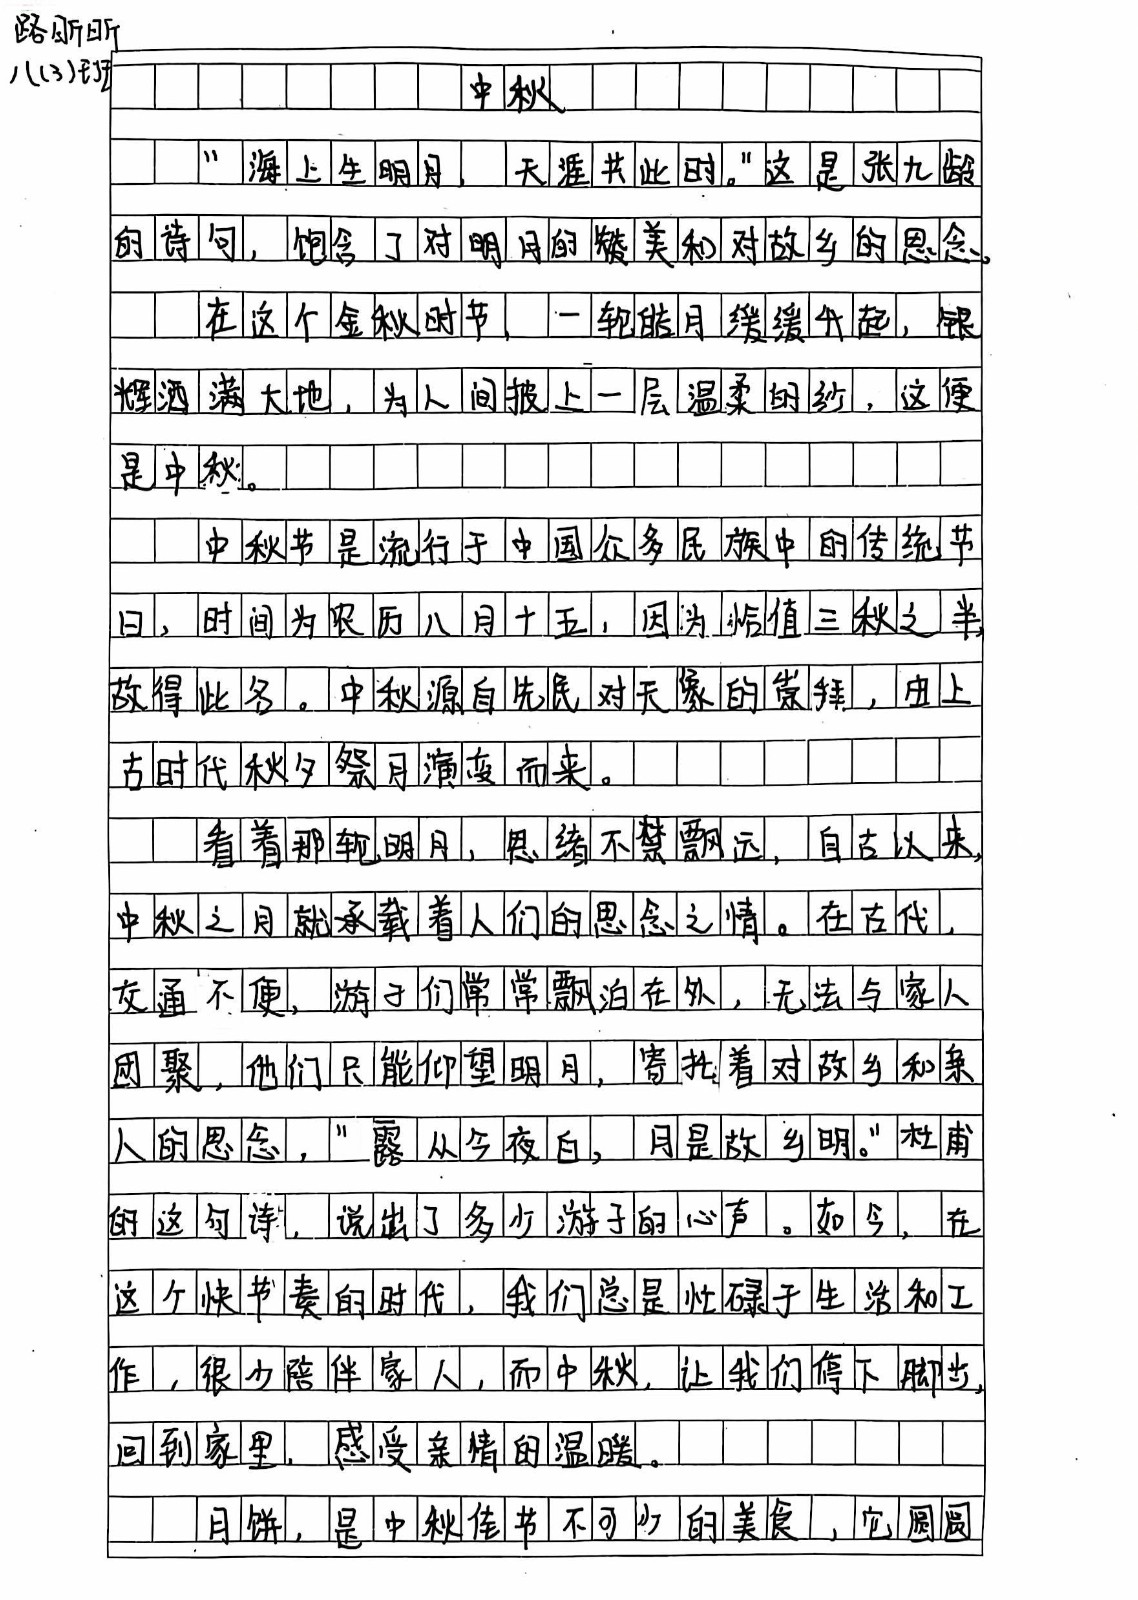 路昕昕
八(3)班
中秋
"海上生明月，天涯共此时。"这是张九龄
的诗句，饱含了对明月的赞美和对故乡的思念。
在这个金秋时节，一轮皓月缓缓升起，银
辉洒满大地，为人间披上一层温柔的纱，这便
是中秋。
中秋节是流行于中国众多民族中的传统节
日，时间为农历八月十五，因为恰值三秋之半，
故得此名。中秋源自先民对天象的崇拜，由上
古时代秋夕祭月演变而来。
看着那轮明月，思绪不禁飘远，自古以来，
中秋之月就承载着人们的思念之情。在古代，
交通不便，游子们常常飘泊在外，无法与家人
团聚，他们只能仰望明月，寄托着对故乡和亲
人的思念，"露从今夜白，月是故乡明。"杜甫
的这句诗，说出了多少游子的心声。如今，在
这个快节奏的时代，我们总是忙碌于生活和工
作，很少陪伴家人，而中秋，让我们停下脚步，
回到家里，感受亲情的温暖。
月饼，是中秋佳节不可少的美食，它圆圆